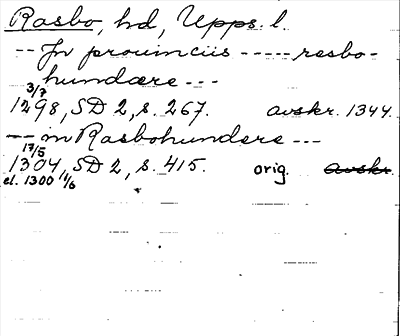 Rasbo, hd, Upps. l.
-- In prouinciis ----- resbo-
hundære ---
3/7
1298, SD 2, s. 267. avskr. 1344.
-- in Rasbohundere ---
17/5
1304, SD 2, s. 415. orig. avskr.
el. 1300 1/6